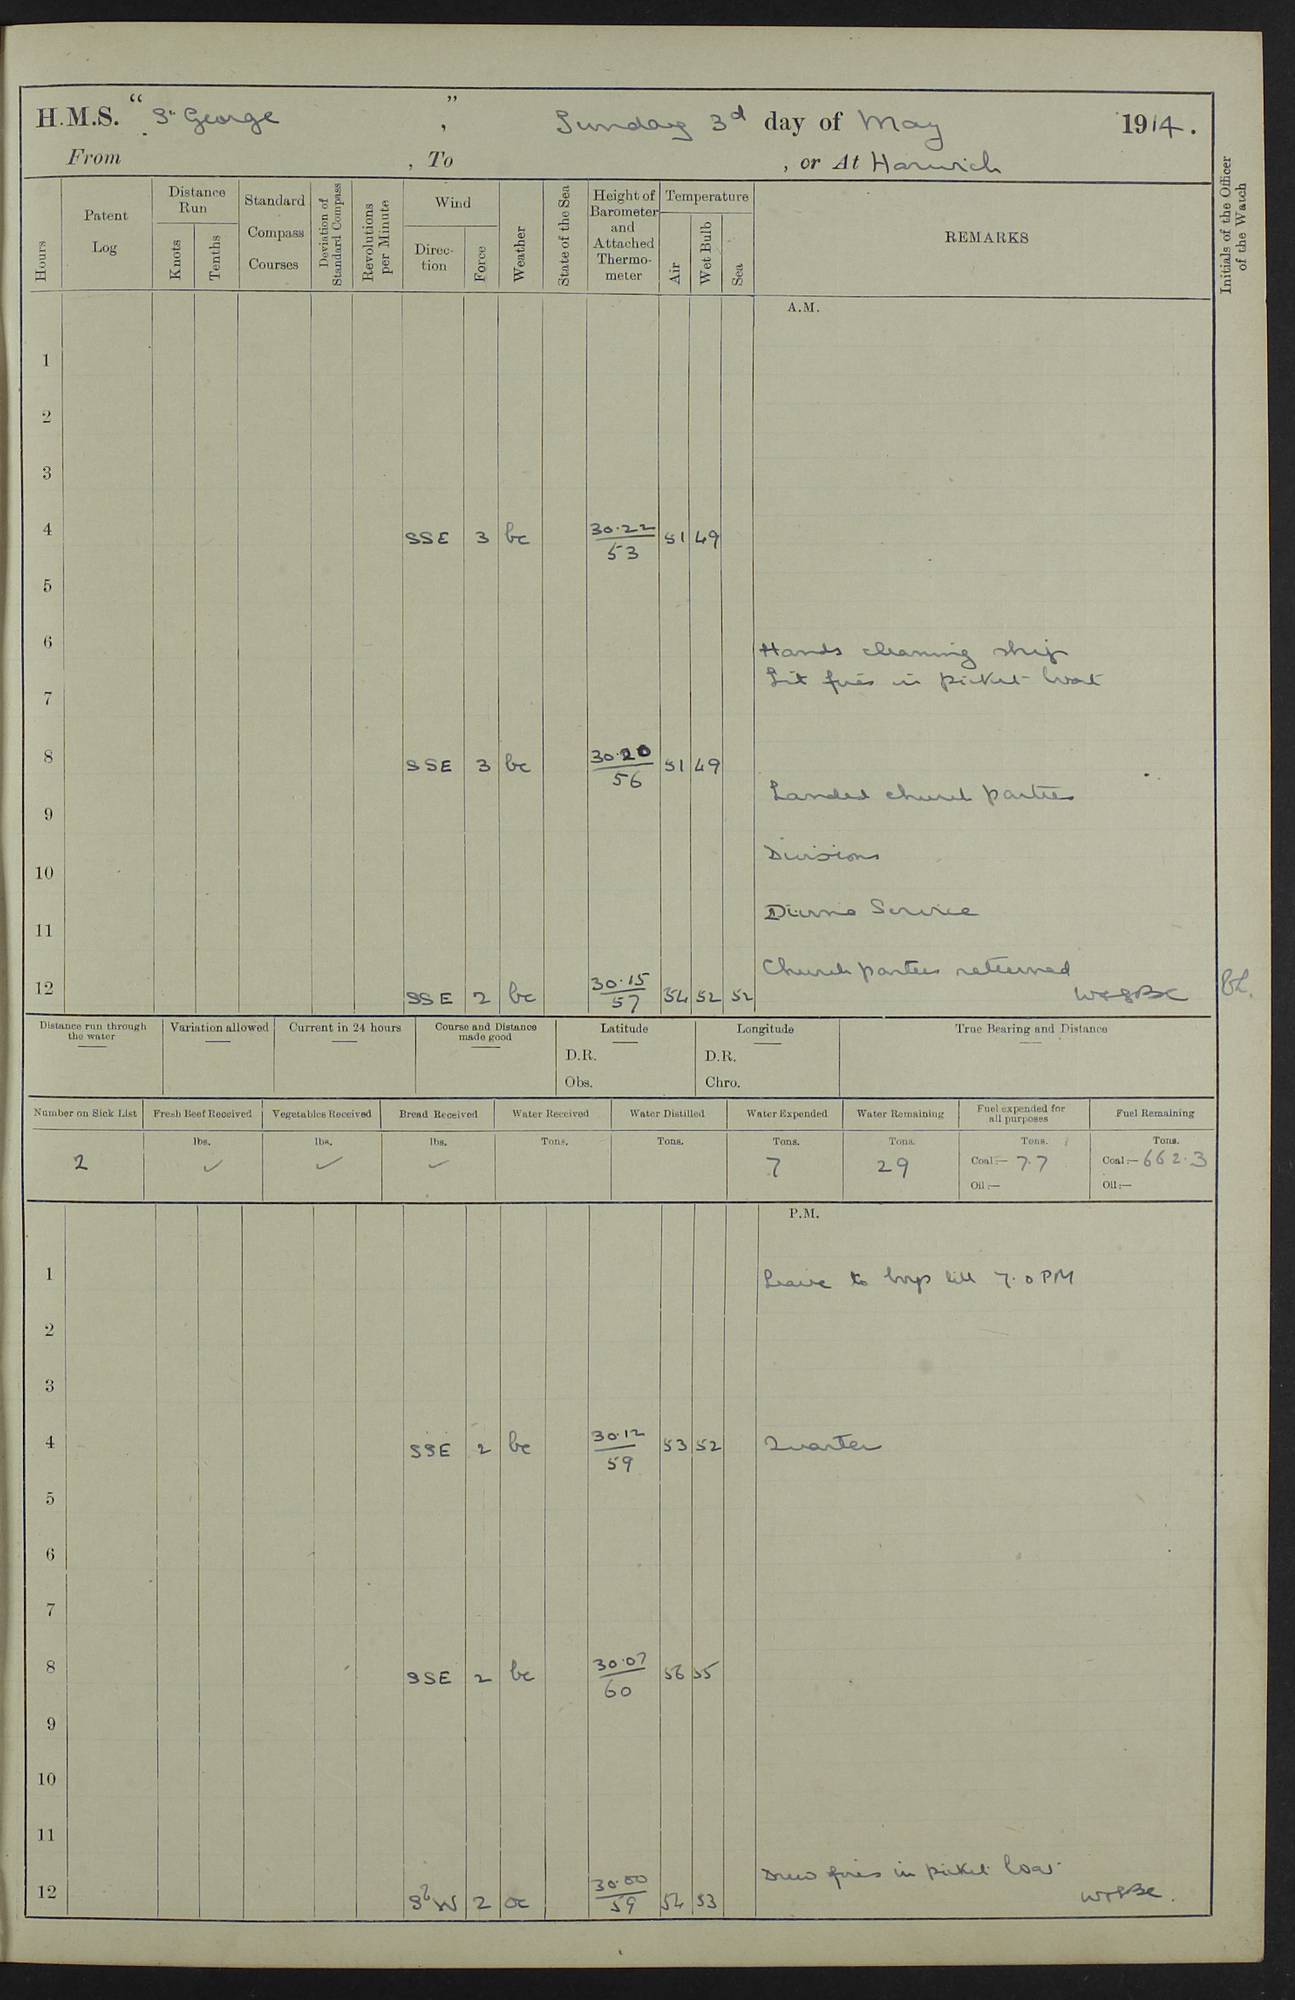 H.M.S. “ St George ” , Sunday 3d day of May 1914.
From , To , or At Harwich
Hours
Patent Log
Distance Run
Knots
Tenths
Standard Compass Courses
Deviation of Standard Compass
Revolutions per Minute
Wind
Direction
Force
Weather
State of the Sea
Height of Barometer and Attached Thermometer
Temperature
Air
Wet Bulb
Sea
REMARKS
Initials of the Officer of the Watch
A.M.
1
2
3
4 SSE 3 bc 30.22/53 51 49
5
6
Hands cleaning ship
Lit fires in picket boat
7
8 SSE 3 bc 30.20/56 51 49
Landed church parties
9
Divisions
10
Divine Service
11
Church parties returned
12 SSE 2 bc 30.15/57 54 52 52
Distance run through the water
Variation allowed
Current in 24 hours
Course and Distance made good
Latitude
D.R.
Obs.
Longitude
D.R.
Chro.
True Bearing and Distance
Number on Sick List
Fresh Beef Received
Vegetables Received
Bread Received
Water Received
Water Distilled
Water Expended
Water Remaining
Fuel expended for all purposes
Fuel Remaining
lbs. lbs. lbs. Tons. Tons. Tons. Tons. Tons. Tons.
2 ✓ ✓ ✓ 7 29 Coal:— 7.7 Coal:— 662.3
Oil:— Oil:—
P.M.
1 Leave to boys till 7.0 PM
2
3
4 SSE 2 bc 30.12/59 53 52 Quarters
5
6
7
8 SSE 2 bc 30.07/60 56 55
9
10
11
Drew fires in picket boat
12 SbW 2 oc 30.00/59 54 53